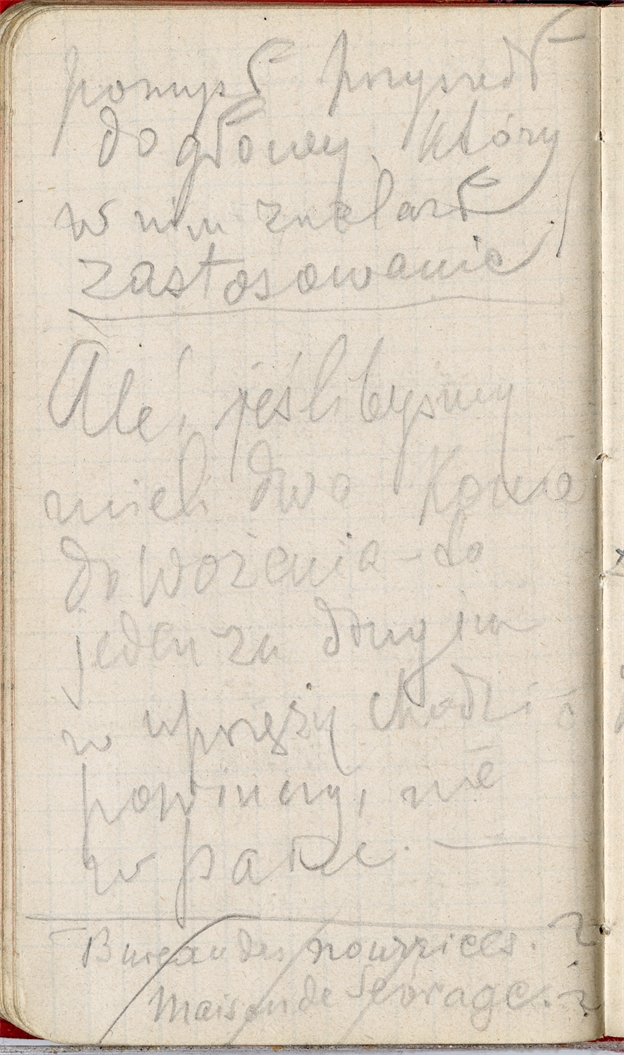 pomysł przyszedł
do głowy, który
w nim znalazł
zastosowanie!
Ale, jeślibyśmy
mieli dwa konie
do wożenia – to
jeden za drugim
w uprzęży chodzić
powinny, nie
w parze. —
Bureau des nourrices. 2
Maison de Sevrage. 2